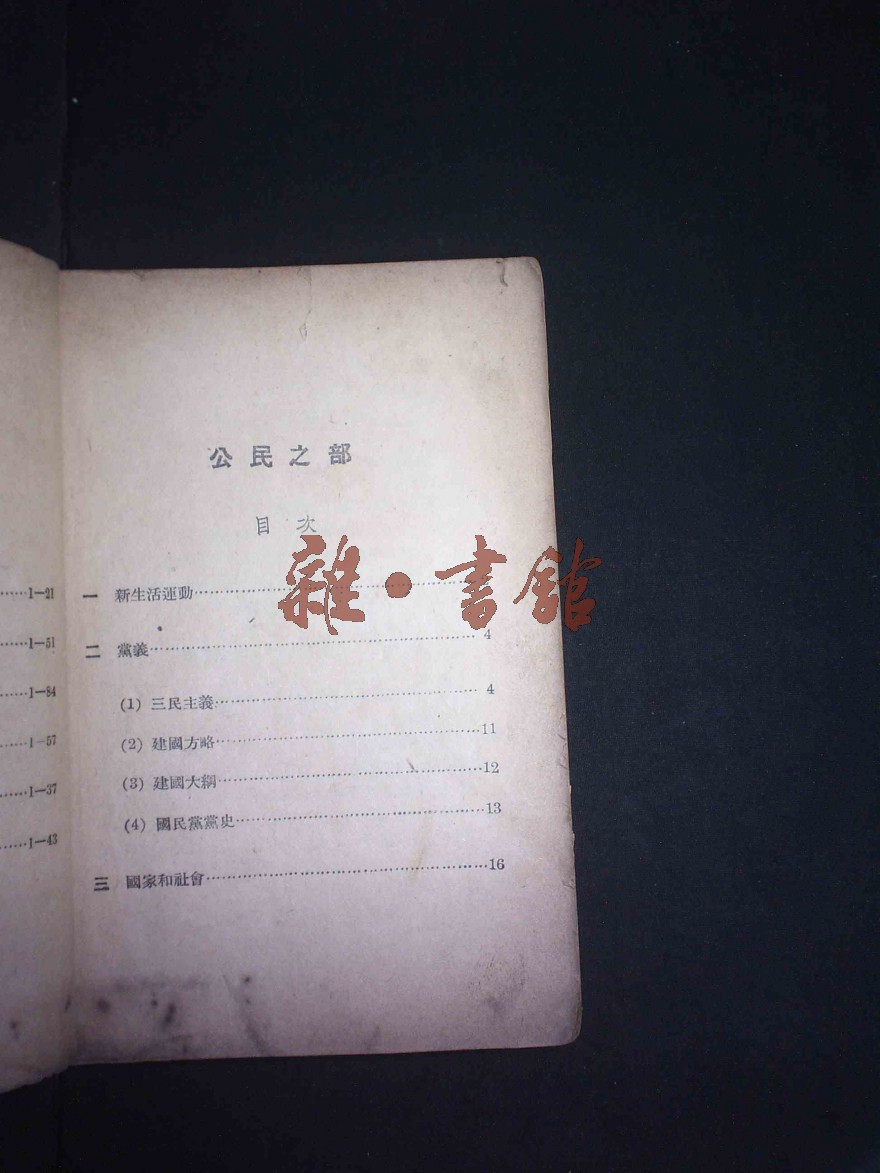 ……1—21
……1—51
……1—84
……1—57
……1—37
……1—43
公民之部
目次
一 新生活運動……
二 黨義……4
(1) 三民主義……4
(2) 建國方略……11
(3) 建國大綱……12
(4) 國民黨黨史……13
三 國家和社會……16
雜·書館